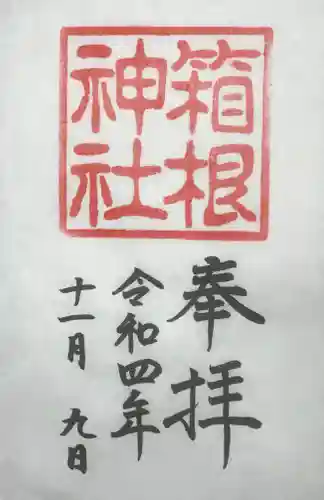 箱根
神社
奉拝
令和四年
十一月九日